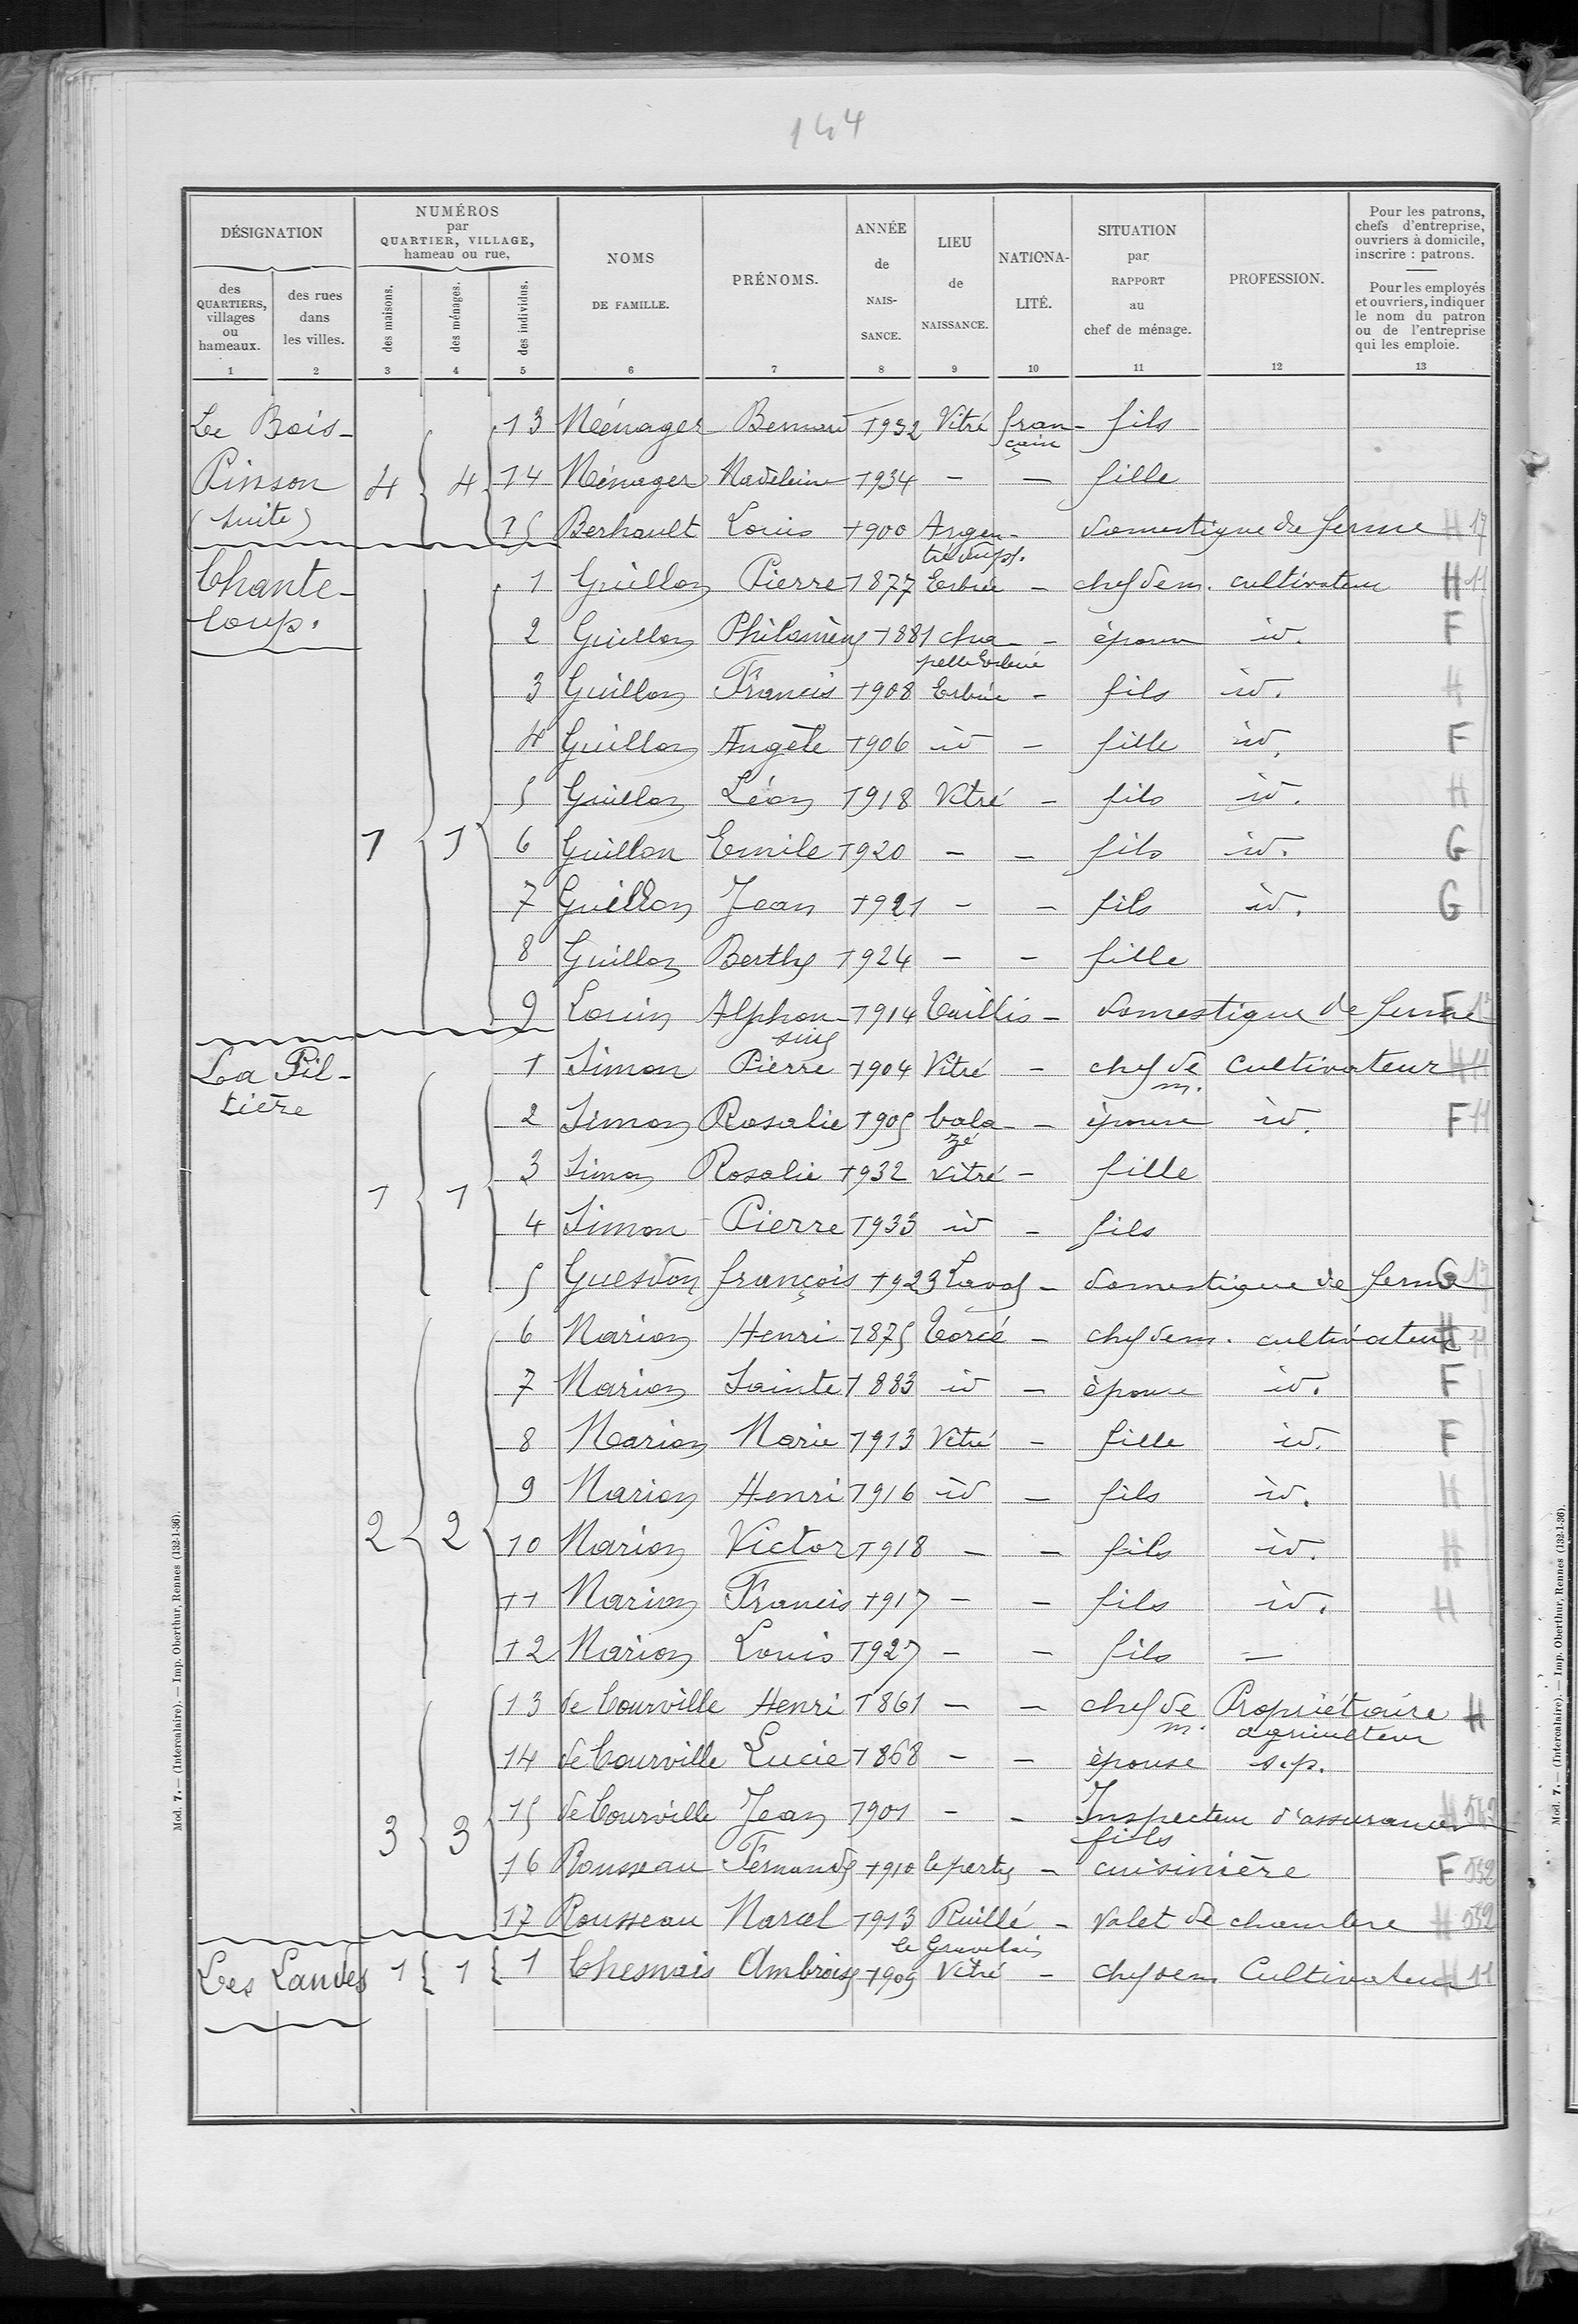 144
DÉSIGNATION
NUMÉROS
par
QUARTIER, VILLAGE,
hameau ou rue,
des QUARTIERS, villages ou hameaux.
des rues dans les villes.
des maisons.
des ménages.
des individus.
NOMS DE FAMILLE.
PRÉNOMS.
ANNÉE de NAIS- SANCE.
LIEU de NAISSANCE.
NATIONA- LITÉ.
SITUATION par RAPPORT au chef de ménage.
PROFESSION.
Pour les patrons, chefs d'entreprise, ouvriers à domicile, inscrire : patrons.
Pour les employés et ouvriers, indiquer le nom du patron ou de l'entreprise qui les emploie.
1 2 3 4 5 6 7 8 9 10 11 12 13
Le Bois- 13 Ménager Bernard 1932 Vitré fran- fils
çaise
Pinson 4 4 14 Ménager Madeleine 1934 - - fille
(suite) 15 Berhault Louis 1900 Argen- domestique de ferme H 17
tré dupl.
Chante- 1 Guillon Pierre 1877 Erbrée - chef de m. cultivateur H 11
loup. 2 Guillon Philomène 1881 cha- - épouse id. F
pelle Erbrée
3 Guillon Francis 1908 Erbrée - fils id. H
4 Guillon Angèle 1906 id - fille id. F
5 Guillon Léon 1918 Vitré - fils id. H
1 1 6 Guillon Emile 1920 - - fils id. G
7 Guillon Jean 1921 - - fils id. G
8 Guillon Berthe 1924 - - fille
9 Louin Alphon- 1914 Taillis - domestique de ferme F
sine
La Pil- 1 Simon Pierre 1904 Vitré - chef de Cultivateur H 11
m.
tière 2 Simon Rosalie 1905 Bala- - épouse id. F 11
zé
1 1 3 Simon Rosalie 1932 Vitré - fille
4 Simon Pierre 1933 id - fils
5 Guesdon françois 1923 Laval - domestique de ferme G 17
6 Marion Henri 1875 Torcé - chef de m. cultivateur H 11
7 Marion Sainte 1883 id - épouse id. F
8 Marion Marie 1913 Vitré - fille id. F
9 Marion Henri 1916 id - fils id. H
2 2 10 Marion Victor 1918 - - fils id. H
11 Marion Francis 1917 - - fils id. H
12 Marion Louis 1927 - - fils -
13 de Courville Henri 1861 - - chef de Propriétaire H
m. agriculteur
14 de Courville Lucie 1868 - - épouse s.p.
3 3 15 de Courville Jean 1901 - - Inspecteur d'assurances H
fils
16 Rousseau Fernande 1910 le pertre - cuisinière F 532
17 Rousseau Marcel 1913 Ruillé - valet de chambre H 532
le Gravelais
Les Landes 1 1 1 Chesnais Ambroise 1909 Vitré - chef de m. Cultivateur H 11
Mod. 7. — (Intercalaire). — Imp. Oberthur, Rennes (132-1-36).
Mod. 7. — (Intercalaire). — Imp. Oberthur, Rennes (132-1-36).